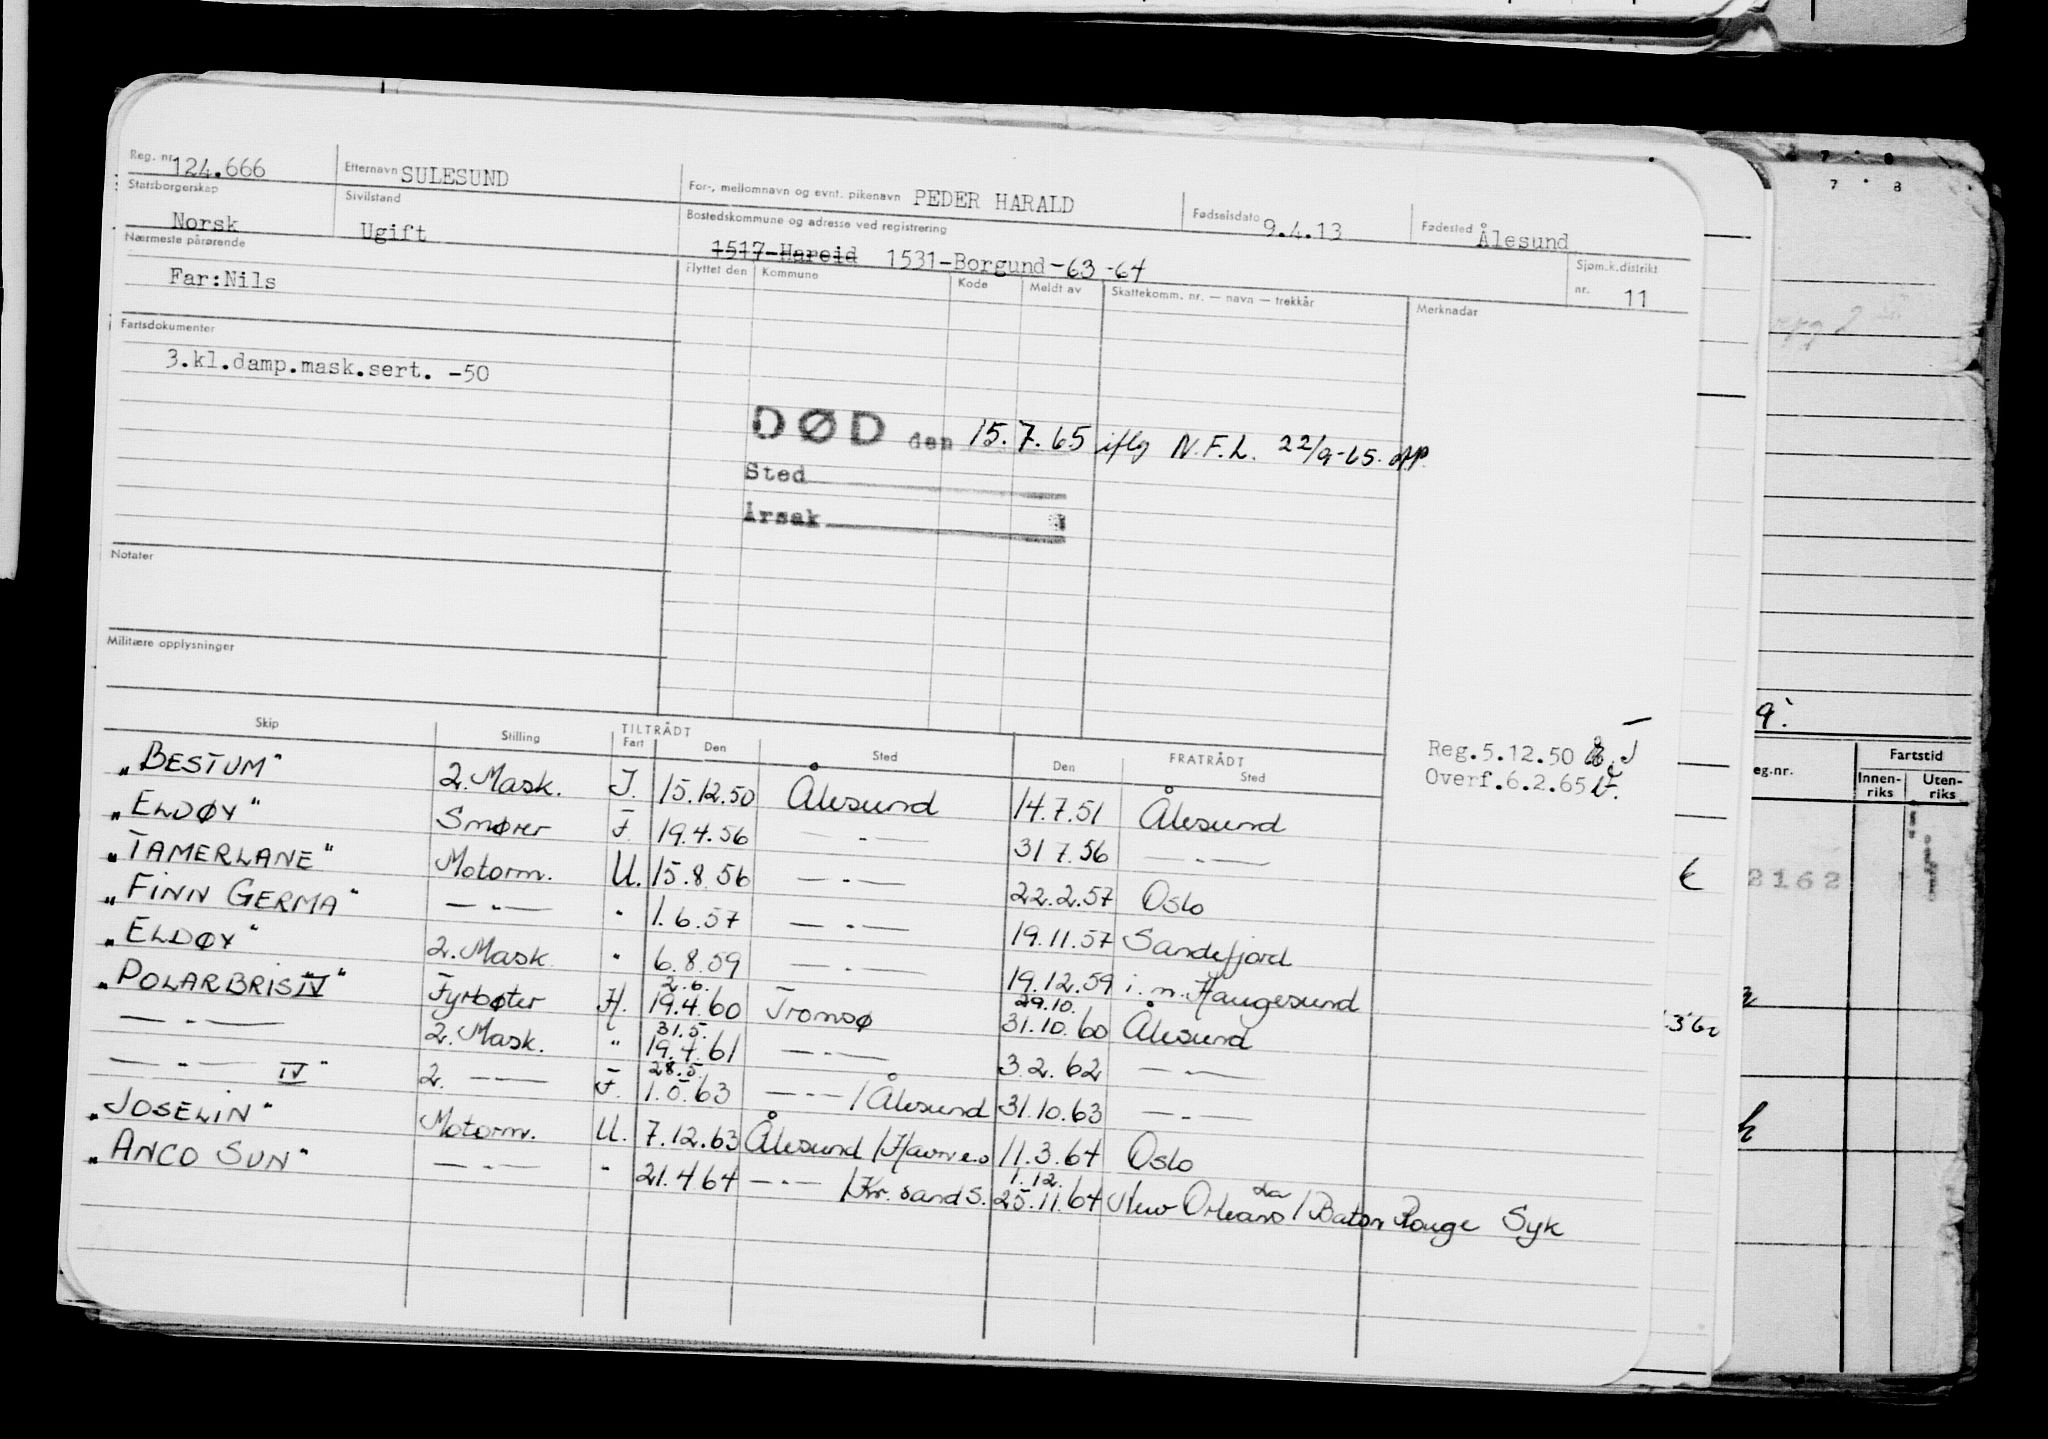 Reg. nr. 124.666 Etternavn SULESUND For-, mellomnavn og evnt. pikenavn PEDER HARALD Fødselsdato 9.4.13 Fødested Ålesund
Statsborgerskap Norsk Sivilstand Ugift Bostedskommune og adresse ved registrering 1517-Hareid 1531-Borgund -63 -64 Sjøm.k.distrikt nr. 11
Nærmeste pårørende Flyttet den Kommune Kode Meldt av Skattekomm. nr. — navn — trekkår Merknader
Far:Nils
Fartsdokumenter
3.kl.damp.mask.sert. -50
DØD den 15.7.65 iflg N.F.L. 22/9-65. opp.
Sted
Årsak
Notater
Militære opplysninger
Reg.5.12.50
Overf.6.2.65
Skip Stilling TILTRÅDT Fart Den Sted FRATRÅDT Den Sted
„BESTUM" 2. Mask. I. 15.12.50 Ålesund 14.7.51 Ålesund
„ELDØY" Smører F. 19.4.56 —„— 31 7.56 —„—
„TAMERLANE" Motorm. U. 15.8.56 —„— 22.2.57 Oslo
„FINN GERMA" —„— " 1.6.57 —„— 19.11.57 Sandefjord
„ELDØY" 2. Mask " 6.8.59 —„— 19.12.59 i. n. Haugesund
2.6. 29.10.
„POLARBRIS IV" Fyrbøter H. 19.4.60 Tromsø 31.10.60 Ålesund
31.5.
—„— 2. Mask. " 19.4.61 —„— 3.2.62 —„—
28.5.
—„— IV" 2. —„— F. 1.5.63 —„— / Ålesund 31.10.63 —„—
„JOSELIN" Motorm. U. 7.12.63 Ålesund / Havnes 11.3.64 Oslo
1.12. La
„ANCO SUN" —„— " 21.4 64 —„— / Kr. sand S. 25.11.64 New Orleans / Baton Rouge Syk
7 8
7 8
eg.nr. Fartstid
Innen-riks Uten-riks
2162